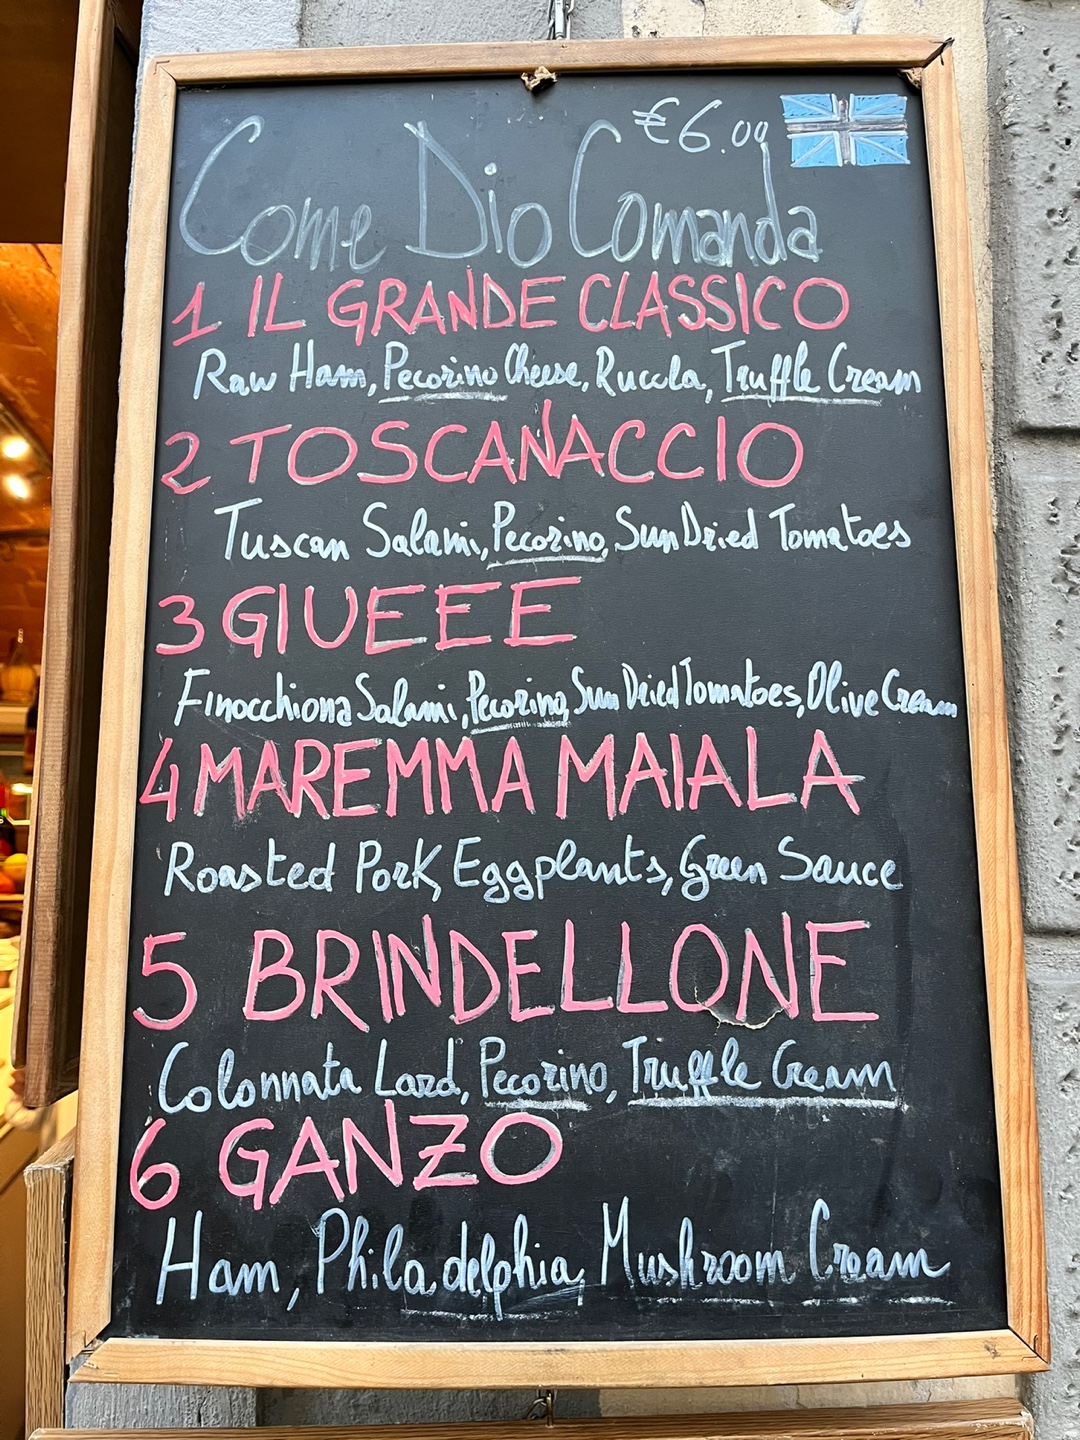 €6.00
Come Dio Comanda
1 IL GRANDE CLASSICO
Raw Ham, Pecorino Cheese, Rucola, Truffle Cream
2 TOSCANACCIO
Tuscan Salami, Pecorino, Sun Dried Tomatoes
3 GIUEEE
Finocchiona Salami, Pecorino, Sun Dried Tomatoes, Olive Cream
4 MAREMMA MAIALA
Roasted Pork, Eggplants, Green Sauce
5 BRINDELLONE
Colonnata Lard, Pecorino, Truffle Cream
6 GANZO
Ham, Philadelphia, Mushroom Cream